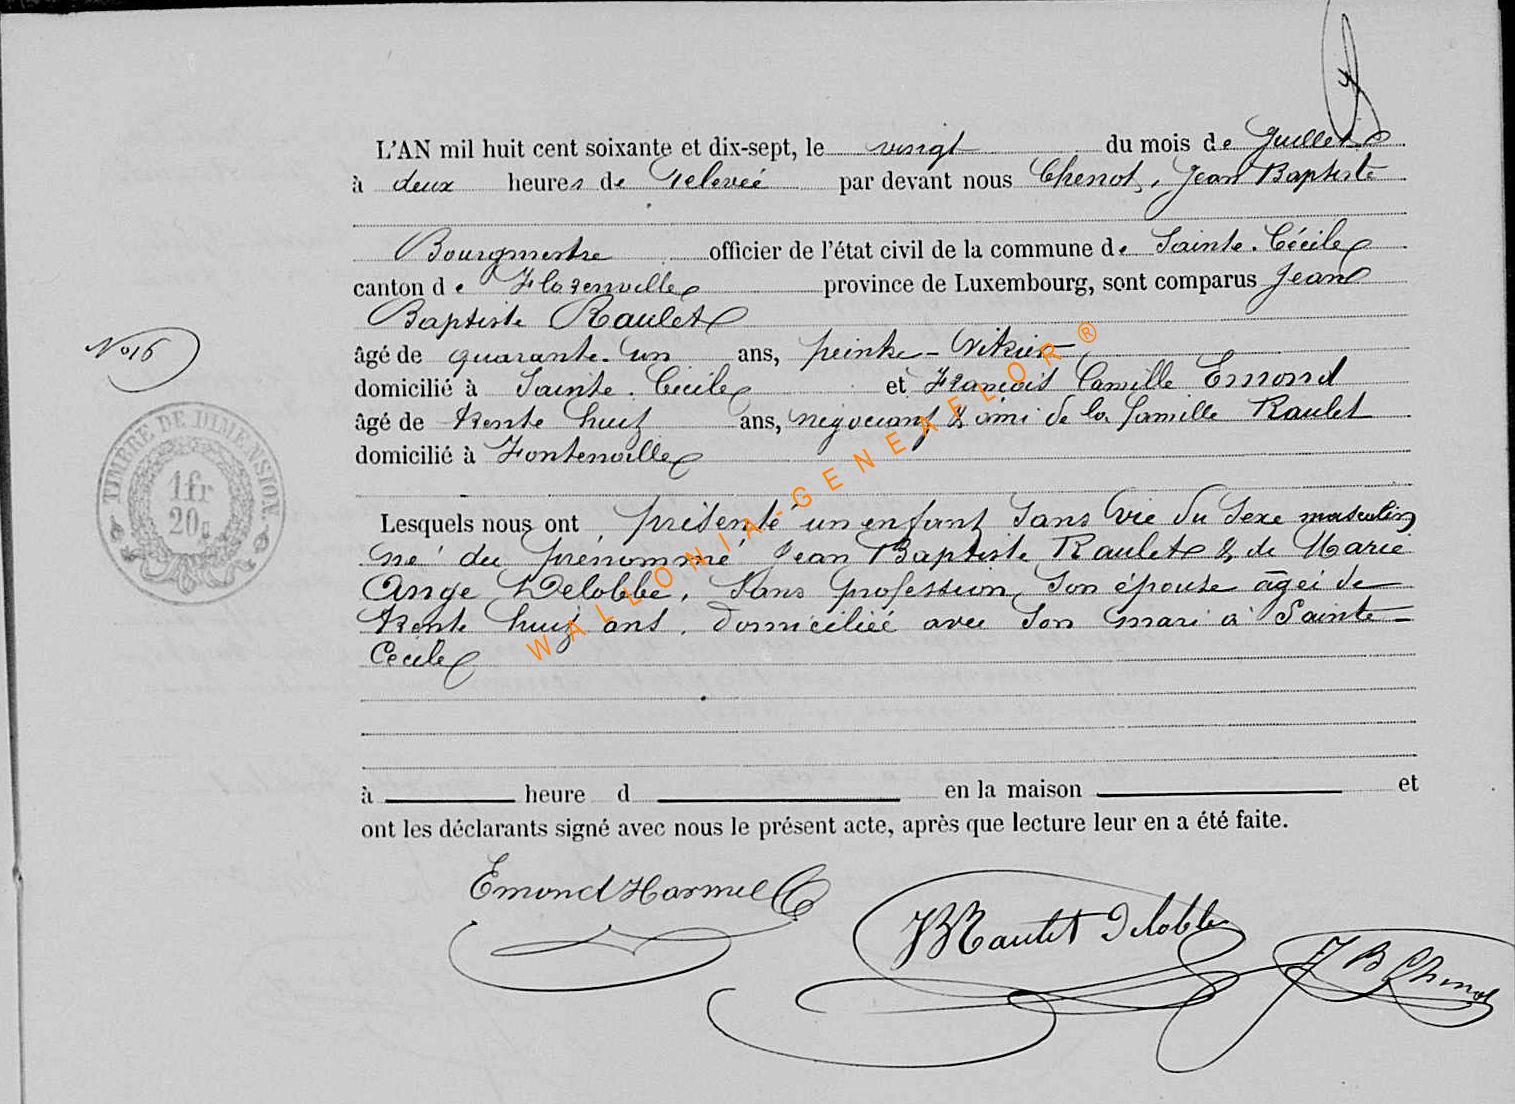 L'AN mil huit cent soixante et dix-sept, le vingt du mois de Juillet
à deux heures de relevée par devant nous Chenot, Jean Baptiste
Bourgmestre officier de l'état civil de la commune de Sainte-Cécile
canton de Florenville province de Luxembourg, sont comparus Jean
Baptiste Raulet
No 16
âgé de quarante-un ans, peintre-vitrier
domicilié à Sainte-Cécile et François Camille Emond
âgé de trente huit ans, négociant & ami de la famille Raulet
domicilié à Fontenoille
TIMBRE DE DIMENSION.
1fr
20c
Lesquels nous ont présenté un enfant sans vie du sexe masculin
né du prénommé Jean Baptiste Raulet & de Marie
Ange Delobbe, sans profession, son épouse âgée de
trente huit ans, domiciliée avec son mari à Sainte-
Cécile
WALLONIA-GENEAFLOR®
à heure d en la maison et
ont les déclarants signé avec nous le présent acte, après que lecture leur en a été faite.
Emond Harmel
JBRaulet Delobbe
JB Chenot